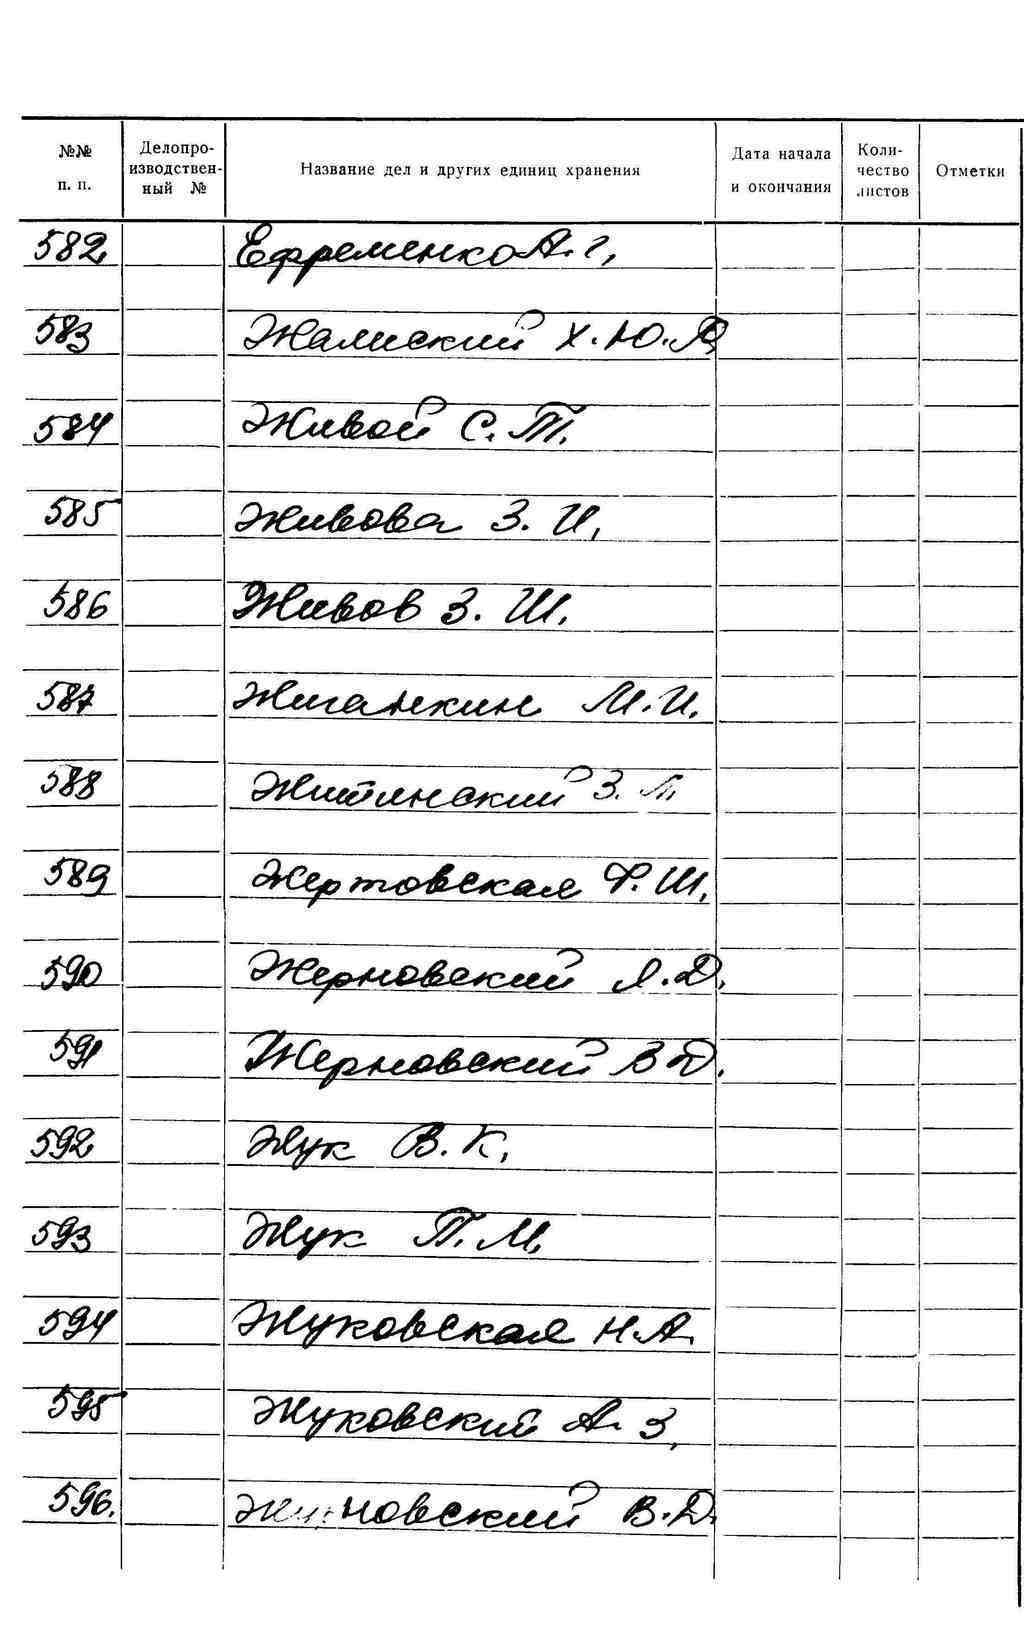 №№ п. п. Делопроизводственный № Название дел и других единиц хранения Дата начала и окончания Количество листов Отметки
582. Ефременко А. Г.
583 Жалиский Х. Ю. Я
584 Живой С. Т.
585 Живова З. И.
586 Живов З. Ш.
587 Жиганкин М. И.
588 Житинский З.
589 Жертовская Ф. Ш.
590 Жерновский Л. Д.
591 Жерновский В Д.
592 Жук В. К.
593 Жук П. М.
594 Жуковская Н. А.
595 Жуковский А. З.
596. В. Д.